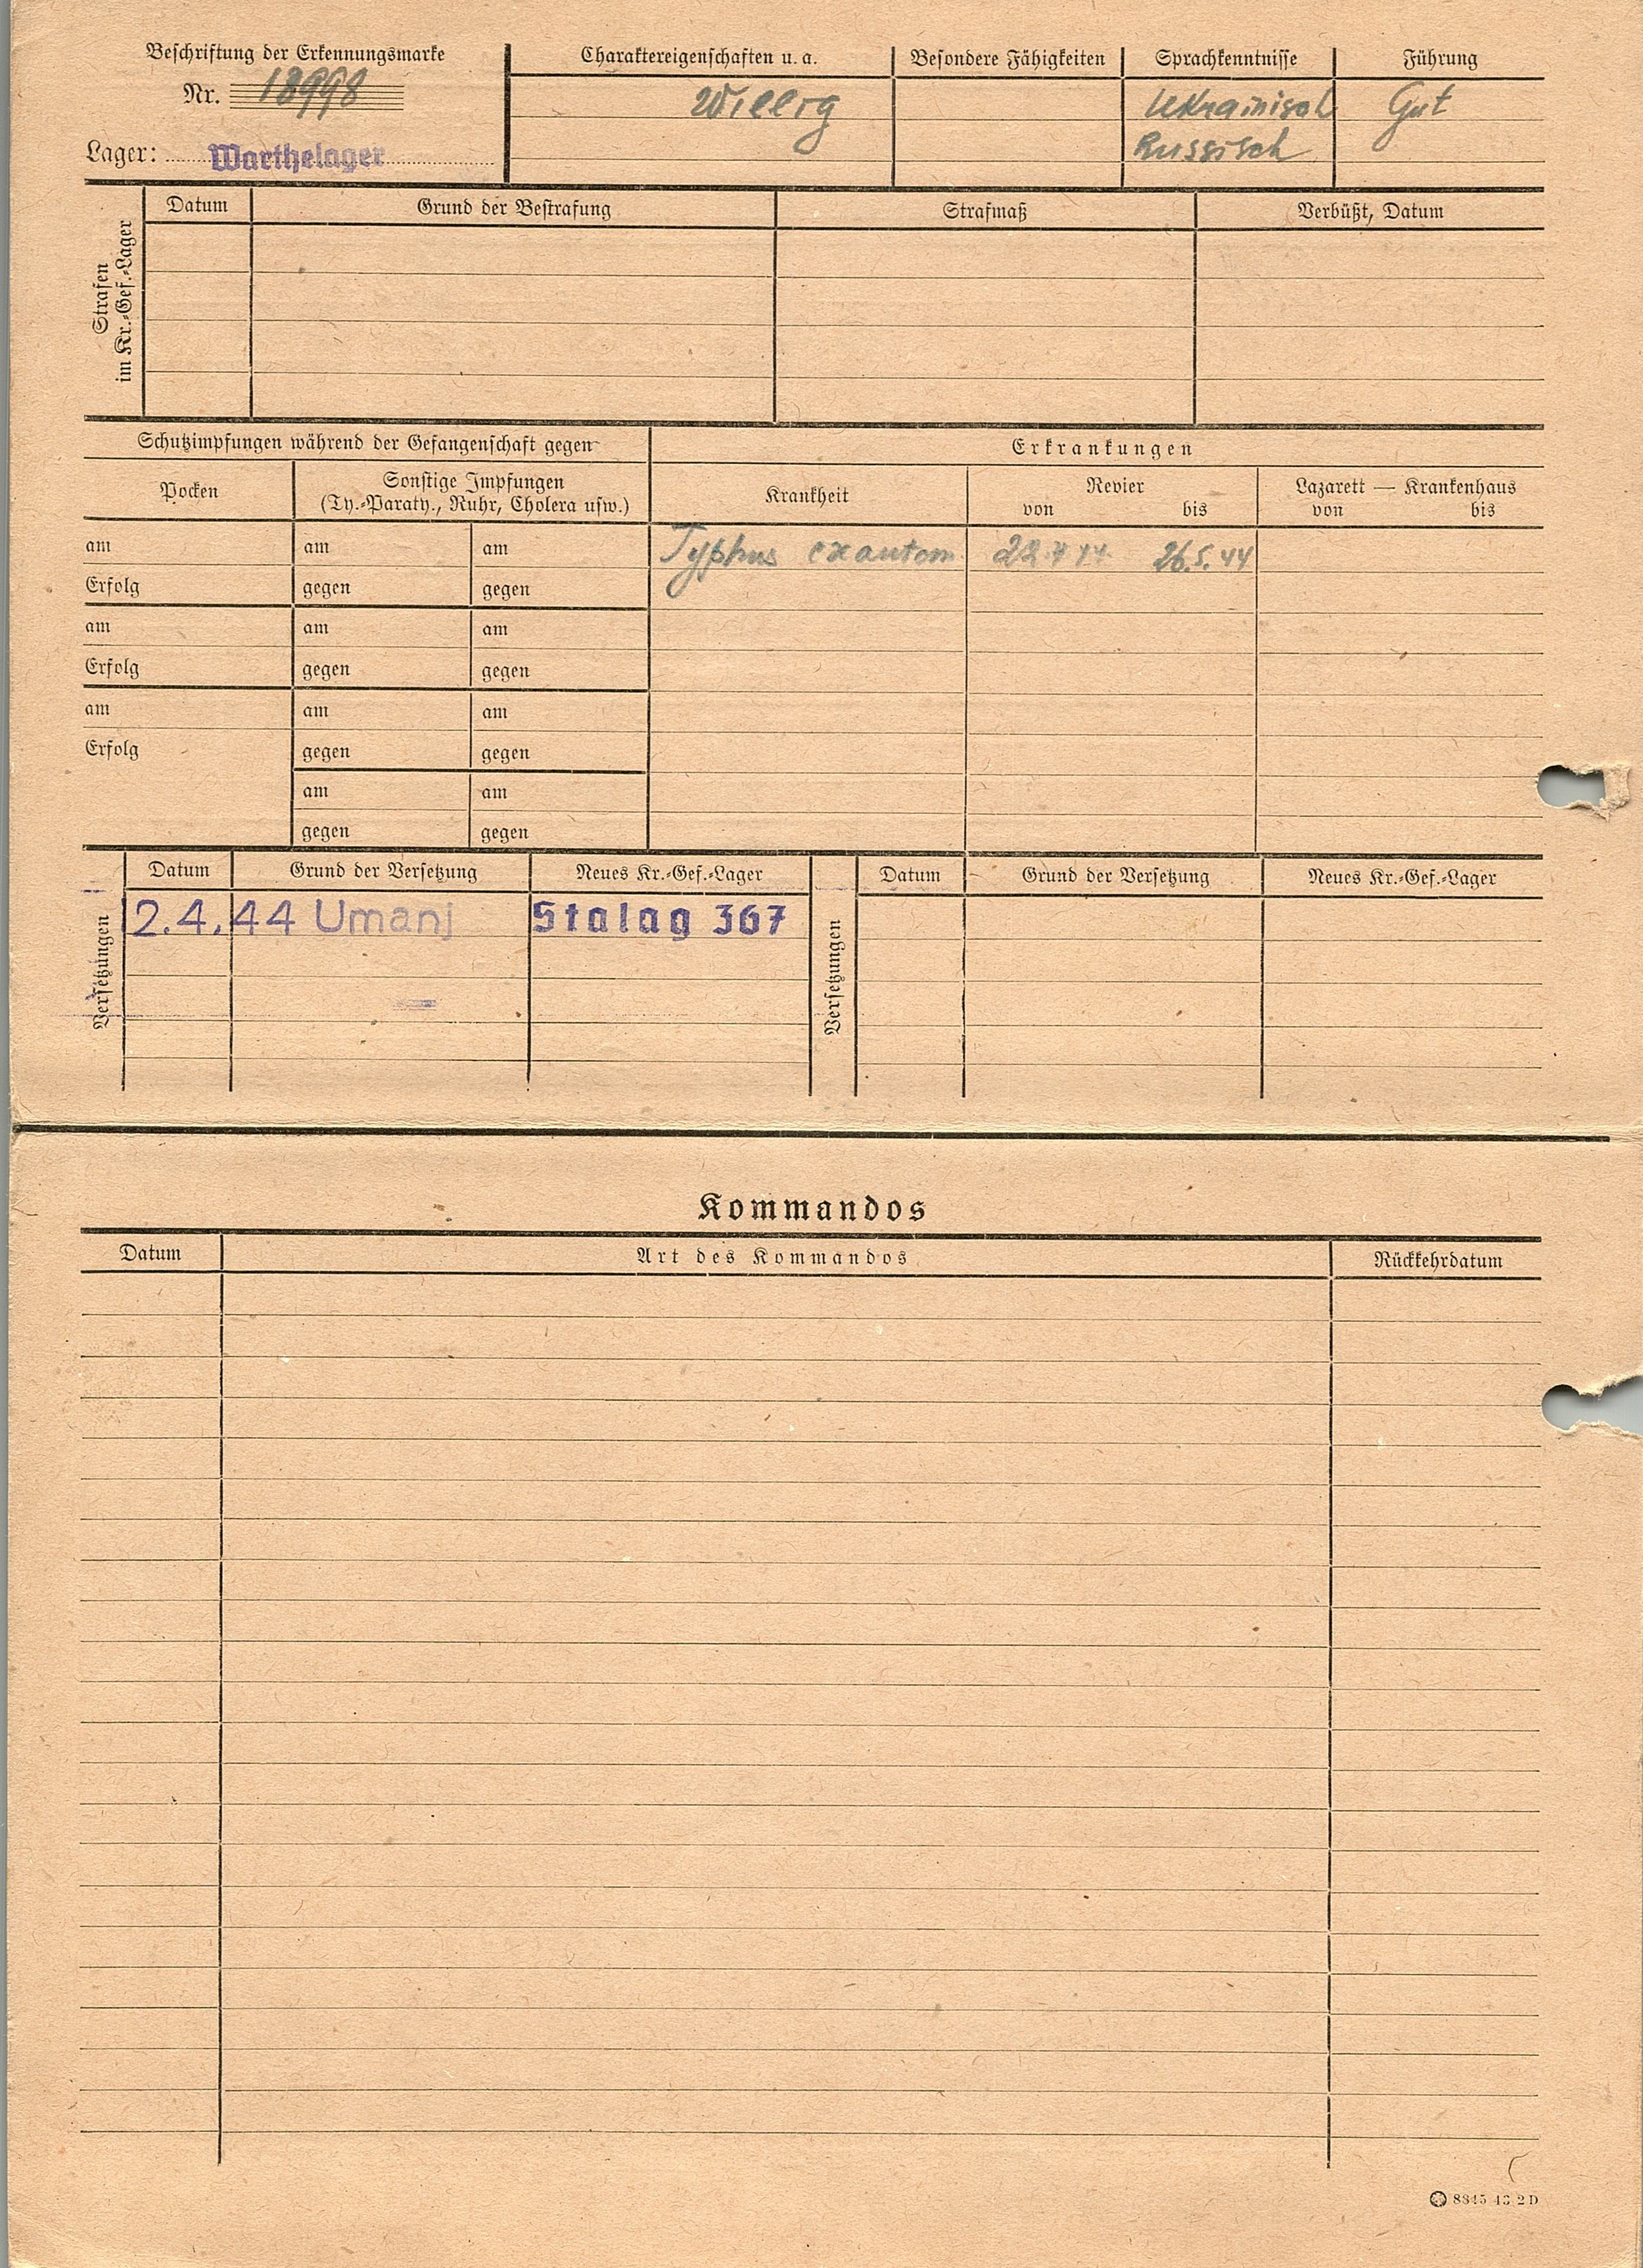 Beschriftung der Erkennungsmarke
Nr. 18998
Lager: Warthelager
Charaktereigenschaften u. a.
Willig
Besondere Fähigkeiten
Sprachkenntnisse
Ukrainisch
Russisch
Führung
Gut
Strafen
im Kr.-Gef.-Lager
Datum
Grund der Bestrafung
Strafmaß
Verbüßt, Datum
Schutzimpfungen während der Gefangenschaft gegen
Erkrankungen
Pocken
Sonstige Impfungen
(Ty.-Paraty., Ruhr, Cholera usw.)
Krankheit
Revier
von bis
Lazarett — Krankenhaus
von bis
am am am
Typhus exantem. 22.4.44. 26.5.44
Erfolg gegen gegen
am am am
Erfolg gegen gegen
am am am
Erfolg gegen gegen
am am
gegen gegen
Versetzungen
Datum Grund der Versetzung Neues Kr.-Gef.-Lager
2.4.44 Umanj Stalag 367
Versetzungen
Datum Grund der Versetzung Neues Kr.-Gef.-Lager
Kommandos
Datum Art des Kommandos Rückkehrdatum
8345 43 2 D